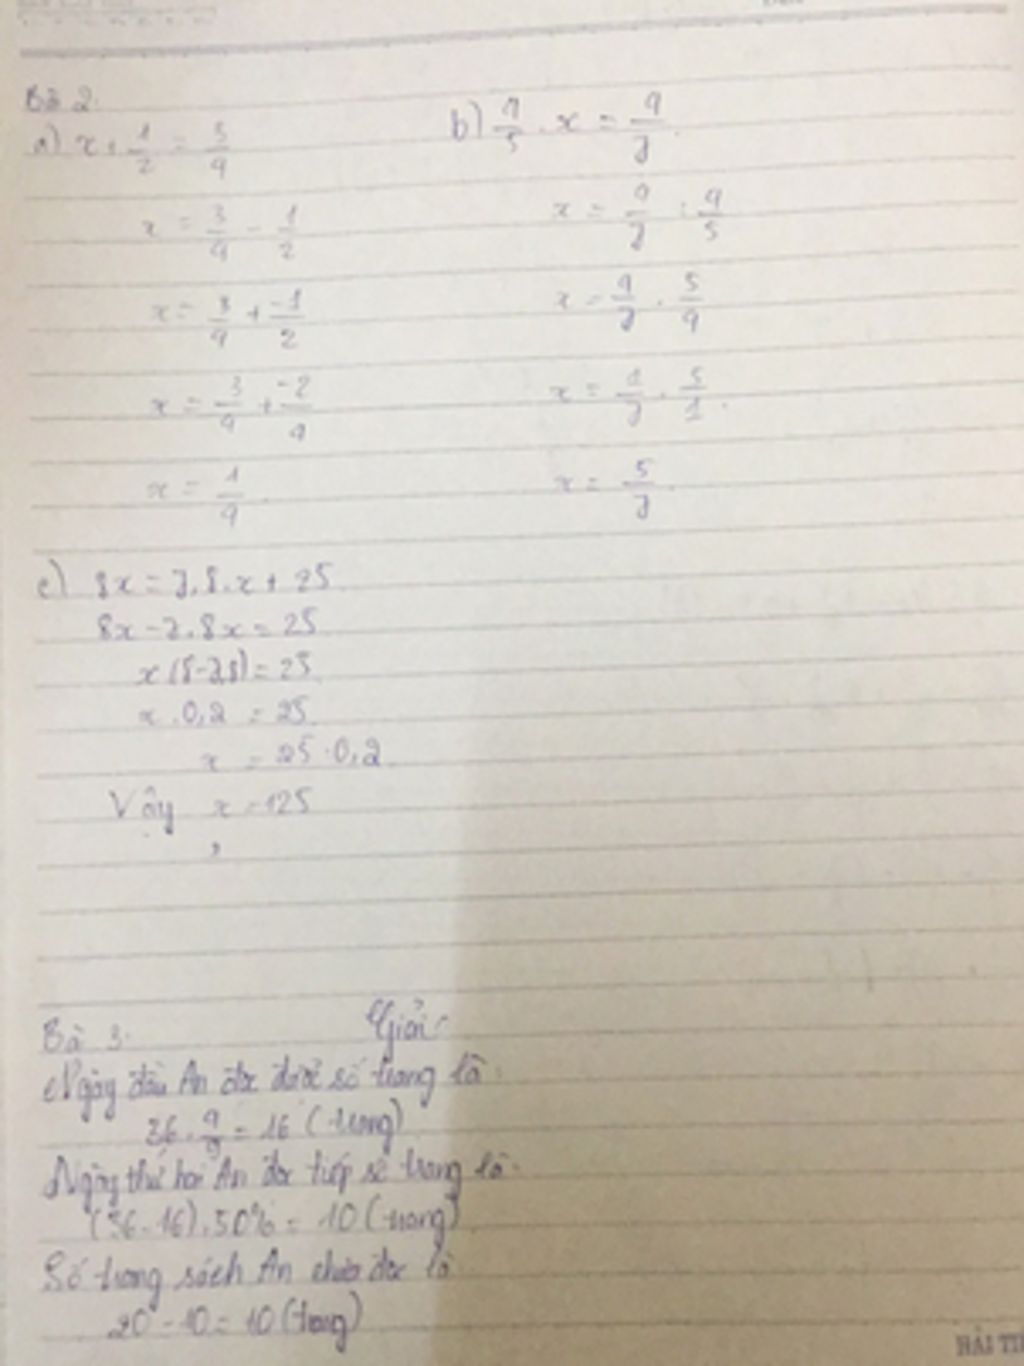 Bài 2.
a) x + 1/2 = 3/4
x = 3/4 - 1/2
x = 3/4 + -1/2
x = 3/4 + -2/4
x = 1/4.
b) 9/5 . x = 9/7.
x = 9/7 : 9/5
x = 9/7 . 5/9
x = 1/7 . 5/1.
x = 5/7.
c) 8x = 7,8.x + 25
8x - 7,8x = 25
x (8-7,8) = 25
x . 0,2 = 25
x = 25 : 0,2
Vậy x = 125
Bài 3. Giải:
Ngày đầu An đọc được số trang là:
36 . 4/9 = 16 (trang)
Ngày thứ hai An đọc tiếp số trang là:
(36 - 16) . 50% = 10 (trang)
Số trang sách An chưa đọc là
20 - 10 = 10 (trang)